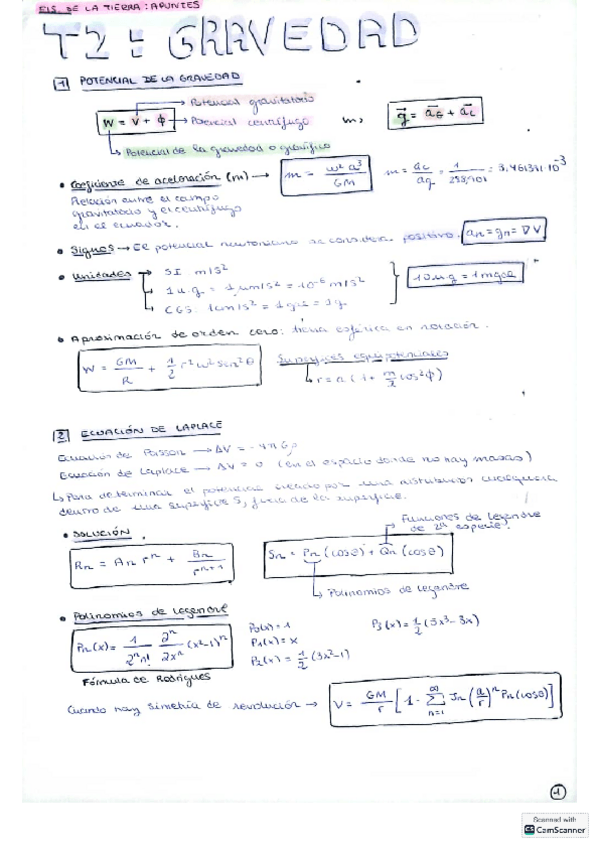 FIS. DE LA TIERRA: APUNTES
T2: GRAVEDAD
1 POTENCIAL DE LA GRAVEDAD
Potencial gravitatorio
W = V + Φ → Potencial centrífugo
g = aG + aC
Potencial de la gravedad o gráfico
• Coeficiente de aceleración (m) → m = ω² a³ / GM
m = ac / ag = 1 / = 3,461391 10⁻³
Relación entre el campo
gravitatorio y el centrífugo
en el ecuador.
• Signos → El potencial newtoniano se considera positivo. an = gn = ∇V
• Unidades → SI m/s²
1 u.g = 1 μm/s² = 10⁻⁶ m/s²
CGS: 1cm/s² = 1 gal = 1g
10 u.g = 1 mgal
• Aproximación de orden cero: tierra esférica en rotación.
W = GM/R + 1/2 r² ω² sen² θ
Superficies equipotenciales
r = a (1 + m/2 cos² ϕ)
2 ECUACIÓN DE LAPLACE
Ecuación de Poisson → ΔV = -4πGρ
Ecuación de Laplace → ΔV = 0 (en el espacio donde no hay masas)
↳ Para determinar el potencial creado por una distribución cualquiera
dentro de una superficie S, fuera de la superficie.
• SOLUCIÓN
Funciones de Legendre
de 2ª especie.
Rn = An rⁿ + Bn / rⁿ⁺¹
Sn = Pn (cosθ) + Qn (cosθ)
Polinomios de Legendre
• Polinomios de Legendre
Pn(x) = 1/2ⁿn! ∂ⁿ/∂xⁿ (x²-1)ⁿ
P0(x) = 1
P1(x) = x
P2(x) = 1/2 (3x²-1)
P3(x) = 1/2 (5x³-3x)
Fórmula de Rodrigues
Cuando hay simetría de revolución → V = GM/r [1 - ∑ n=1 ∞ Jn (a/r)ⁿ Pn(cosθ)]
1
Scanned with
CS CamScanner